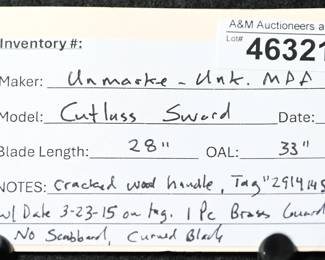 A&M Auctioneers a
Inventory #:
Lot# 46321
Maker: Unmarke - Unk. MDA
Model: Cutlass Sword Date:
Blade Length: 28" OAL: 33"
NOTES: Cracked wood handle, Tag "2914145
w/ Date 3-23-15 on tag. 1 Pc Brass Guard
No Scabbard, Curved Blade